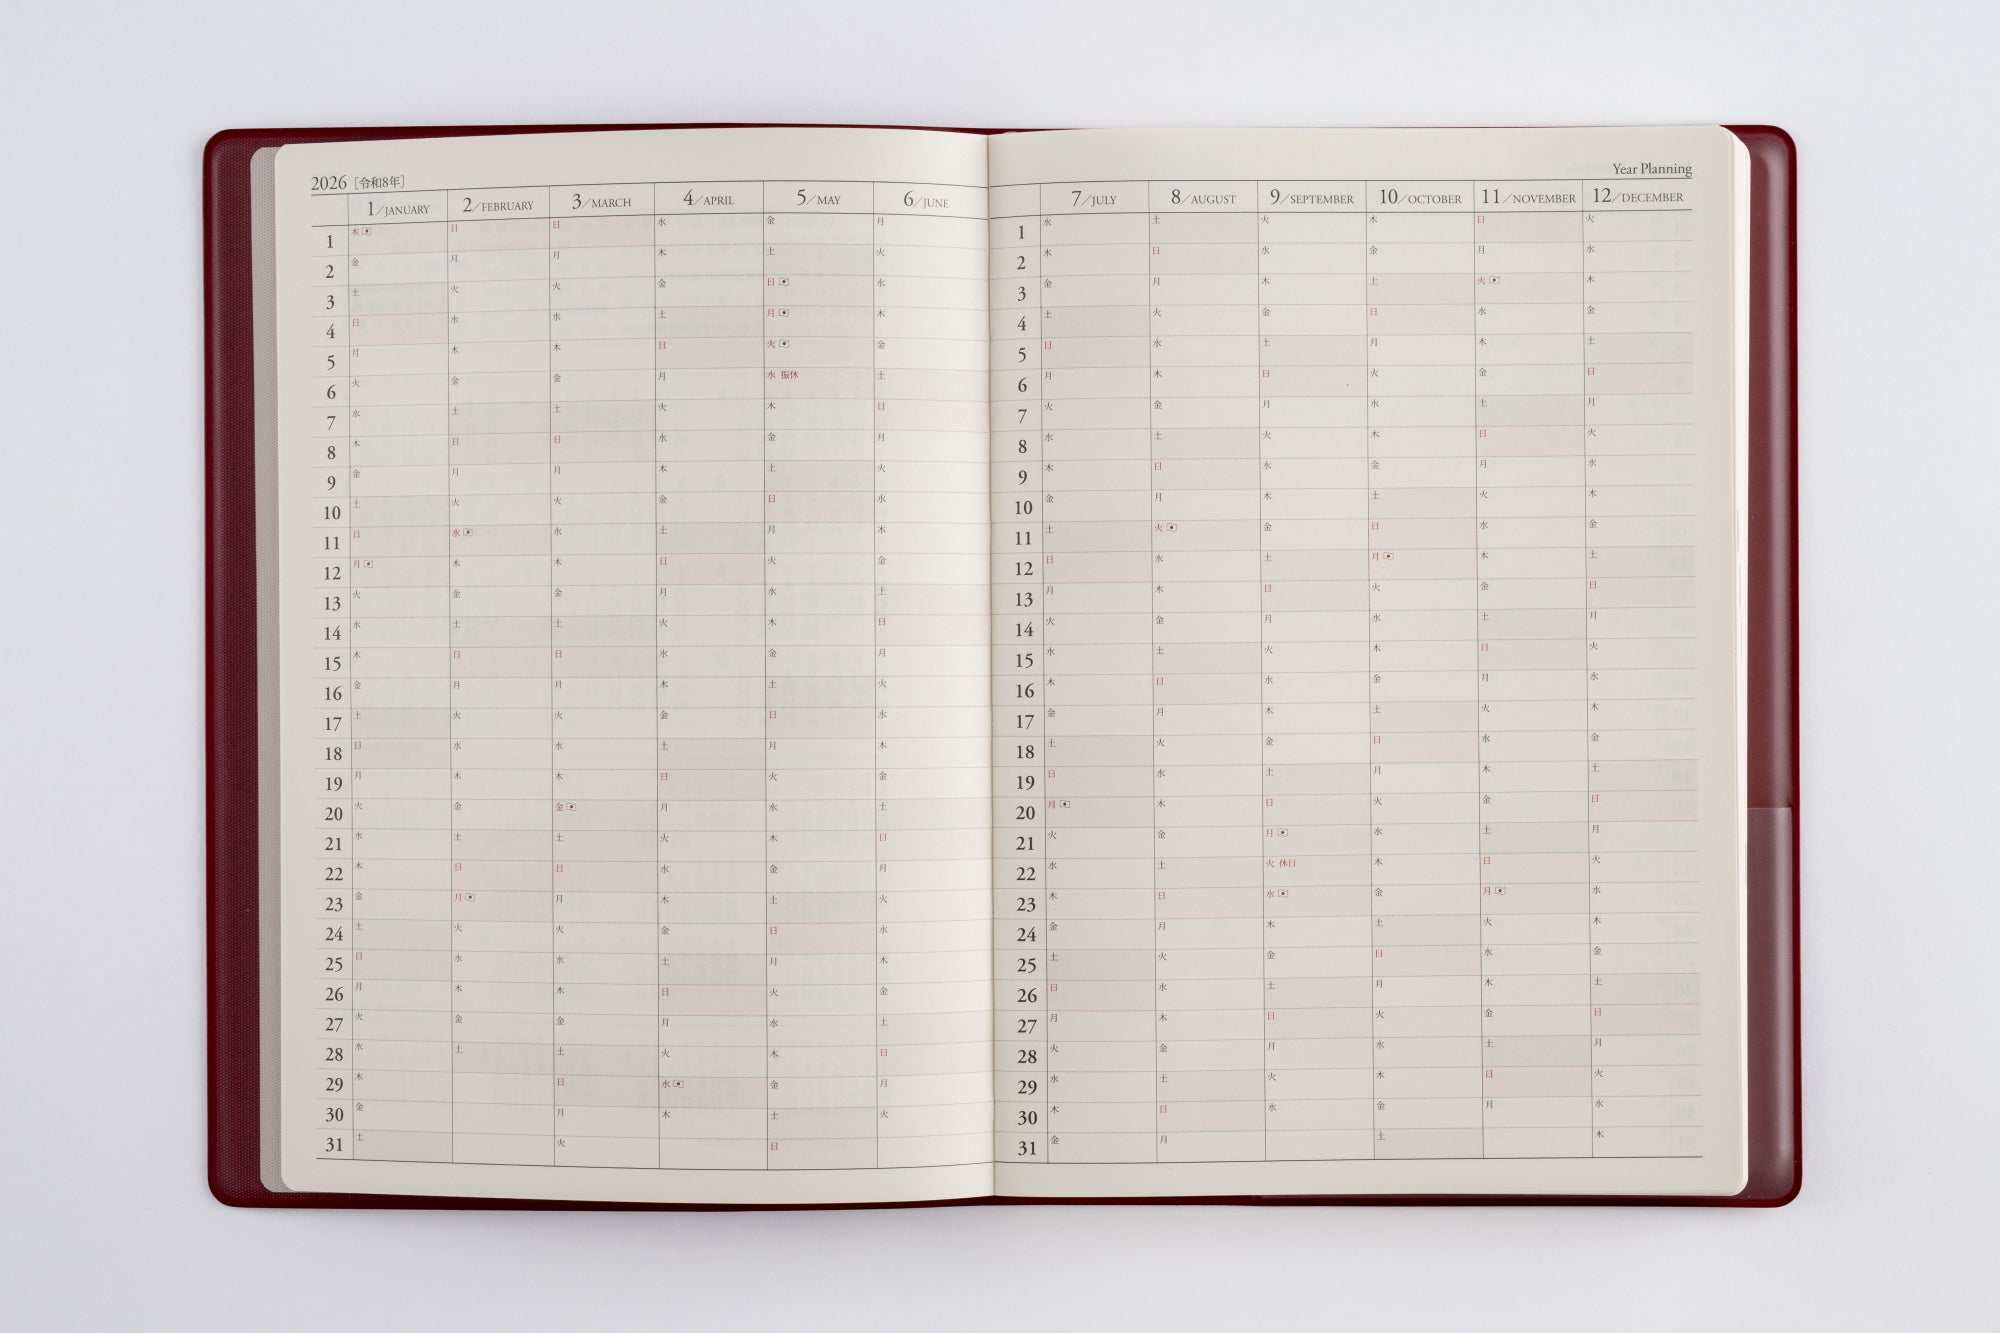 2026 [令和8年]
1/JANUARY 2/FEBRUARY 3/MARCH 4/APRIL 5/MAY 6/JUNE
1 木 日 日 水 金 月
2 金 月 月 木 土 火
3 土 火 火 金 日 水
4 日 水 水 土 月 木
5 月 木 木 日 火 金
6 火 金 金 月 水 振休 土
7 水 土 土 火 木 日
8 木 日 日 水 金 月
9 金 月 月 木 土 火
10 土 火 火 金 日 水
11 日 水 水 土 月 木
12 月 木 木 日 火 金
13 火 金 金 月 水 土
14 水 土 土 火 木 日
15 木 日 日 水 金 月
16 金 月 月 木 土 火
17 土 火 火 金 日 水
18 日 水 水 土 月 木
19 月 木 木 日 火 金
20 火 金 金 月 水 土
21 水 土 土 火 木 日
22 木 日 日 水 金 月
23 金 月 月 木 土 火
24 土 火 火 金 日 水
25 日 水 水 土 月 木
26 月 木 木 日 火 金
27 火 金 金 月 水 土
28 水 土 土 火 木 日
29 木 日 水 金 月
30 金 月 木 土 火
31 土 火 日
Year Planning
7/JULY 8/AUGUST 9/SEPTEMBER 10/OCTOBER 11/NOVEMBER 12/DECEMBER
1 水 土 火 木 日 火
2 木 日 水 金 月 水
3 金 月 木 土 火 木
4 土 火 金 日 水 金
5 日 水 土 月 木 土
6 月 木 日 火 金 日
7 火 金 月 水 土 月
8 水 土 火 木 日 火
9 木 日 水 金 月 水
10 金 月 木 土 火 木
11 土 火 金 日 水 金
12 日 水 土 月 木 土
13 月 木 日 火 金 日
14 火 金 月 水 土 月
15 水 土 火 木 日 火
16 木 日 水 金 月 水
17 金 月 木 土 火 木
18 土 火 金 日 水 金
19 日 水 土 月 木 土
20 月 木 日 火 金 日
21 火 金 月 水 土 月
22 水 土 火 休日 木 日 火
23 木 日 水 金 月 水
24 金 月 木 土 火 木
25 土 火 金 日 水 金
26 日 水 土 月 木 土
27 月 木 日 火 金 日
28 火 金 月 水 土 月
29 水 土 火 木 日 火
30 木 日 水 金 月 水
31 金 月 土 木